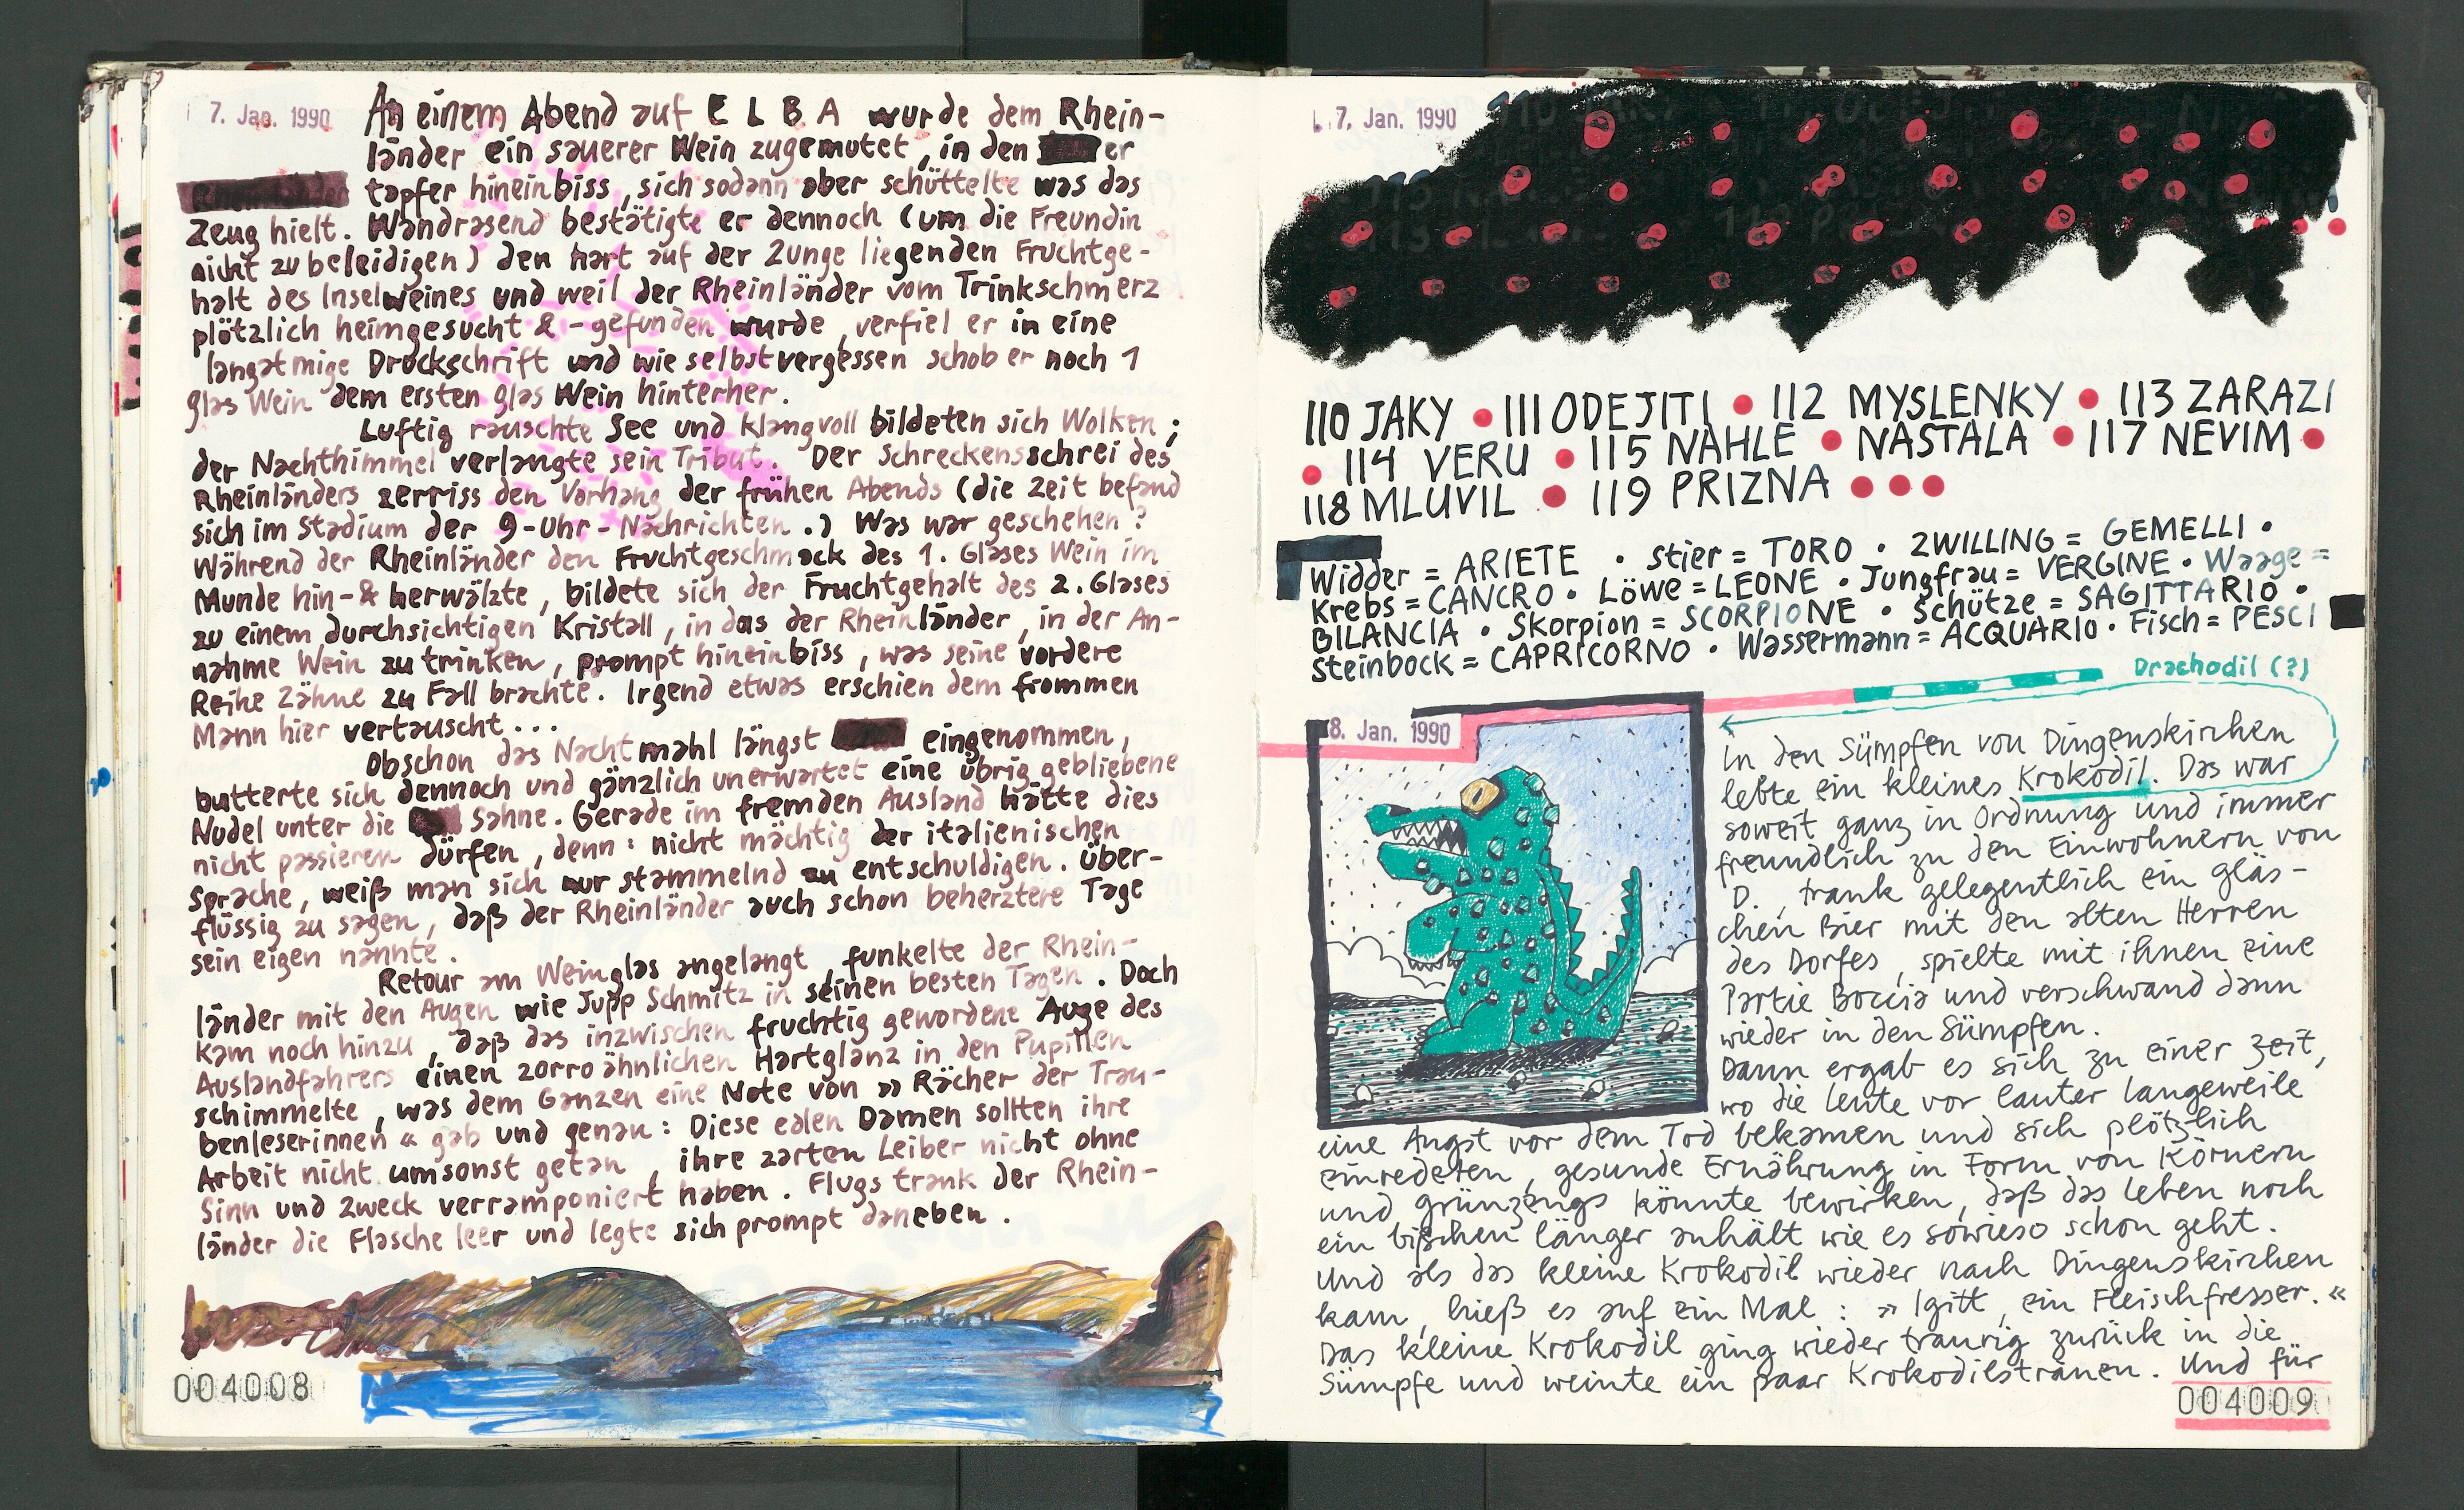 7. Jan. 1990
An einem Abend auf ELBA wurde dem Rhein-
länder ein sauerer Wein zugemutet, in den er
tapfer hineinbiss, sich sodann aber schüttelte was das
Zeug hielt. Wandrasend bestätigte er dennoch (um die Freundin
nicht zu beleidigen) den hart auf der Zunge liegenden Fruchtge-
halt des Inselweines und weil der Rheinländer vom Trinkschmerz
plötzlich heimgesucht & -gefunden wurde, verfiel er in eine
langatmige Drockschrift und wie selbstvergessen schob er noch 1
glas Wein dem ersten glas Wein hinterher.
Luftig rauschte See und klangvoll bildeten sich Wolken;
der Nachthimmel verlangte sein Tribut. Der Schreckensschrei des
Rheinländers zerriss den Vorhang der frühen Abends (die Zeit befand
sich im Stadium der 9-Uhr-Nachrichten.) Was war geschehen?
Während der Rheinländer den Fruchtgeschmack des 1. Glases Wein im
Munde hin-& herwälzte, bildete sich der Fruchtgehalt des 2. Glases
zu einem durchsichtigen Kristall, in das der Rheinländer, in der An-
nahme Wein zu trinken, prompt hineinbiss, was seine vordere
Reihe Zähne zu Fall brachte. Irgend etwas erschien dem frommen
Mann hier vertauscht...
Obschon das Nachtmahl längst eingenommen,
butterte sich dennoch und gänzlich unerwartet eine übrig gebliebene
Nudel unter die Sahne. Gerade im fremden Ausland hätte dies
nicht passieren dürfen, denn: nicht mächtig der italienischen
Sprache, weiß man sich nur stammelnd zu entschuldigen. Über-
flüssig zu sagen, daß der Rheinländer auch schon beherztere Tage
sein eigen nannte.
Retour am Weinglas angelangt, funkelte der Rhein-
länder mit den Augen wie Jupp Schmitz in seinen besten Tagen. Doch
kam noch hinzu, daß das inzwischen fruchtig gewordene Auge des
Auslandfahrers einen zorro ähnlichen Hartglanz in den Pupillen
schimmelte, was dem Ganzen eine Note von »Rächer der Trau-
benleserinnen« gab und genau: Diese edlen Damen sollten ihre
Arbeit nicht umsonst getan, ihre zarten Leiber nicht ohne
Sinn und Zweck verramponiert haben. Flugs trank der Rhein-
länder die Flasche leer und legte sich prompt daneben.
004008
7. Jan. 1990
110 JAKY • 111 ODEJITI • 112 MYSLENKY • 113 ZARAZI
• 114 VERU • 115 NAHLE • NASTALA • 117 NEVIM •
118 MLUVIL • 119 PRIZNA • • •
Widder = ARIETE • Stier = TORO • ZWILLING = GEMELLI •
Krebs = CANCRO • Löwe = LEONE • Jungfrau = VERGINE • Waage =
BILANCIA • Skorpion = SCORPIONE • Schütze = SAGITTARIO •
Steinbock = CAPRICORNO • Wassermann = ACQUARIO • Fisch = PESCI
Drachodil (?)
8. Jan. 1990
In den Sümpfen von Dingenskirchen
lebte ein kleines Krokodil. Das war
soweit ganz in Ordnung und immer
freundlich zu den Einwohnern von
D., trank gelegentlich ein gläs-
chen Bier mit den alten Herren
des Dorfes, spielte mit ihnen eine
Partie Boccia und verschwand dann
wieder in den Sümpfen.
Dann ergab es sich zu einer Zeit,
wo die Leute vor lauter Langeweile
eine Angst vor dem Tod bekamen und sich plötzlich
einredeten, gesunde Ernährung in Form von Körnern
und grünzeugs könnte bewirken, daß das Leben noch
ein bißchen länger anhält wie es sowieso schon geht.
Und als das kleine Krokodil wieder nach Dingenskirchen
kam, hieß es auf ein Mal: »Igitt, ein Fleischfresser.«
Das kleine Krokodil ging wieder traurig zurück in die
Sümpfe und weinte ein paar Krokodilstränen. Und für
004009